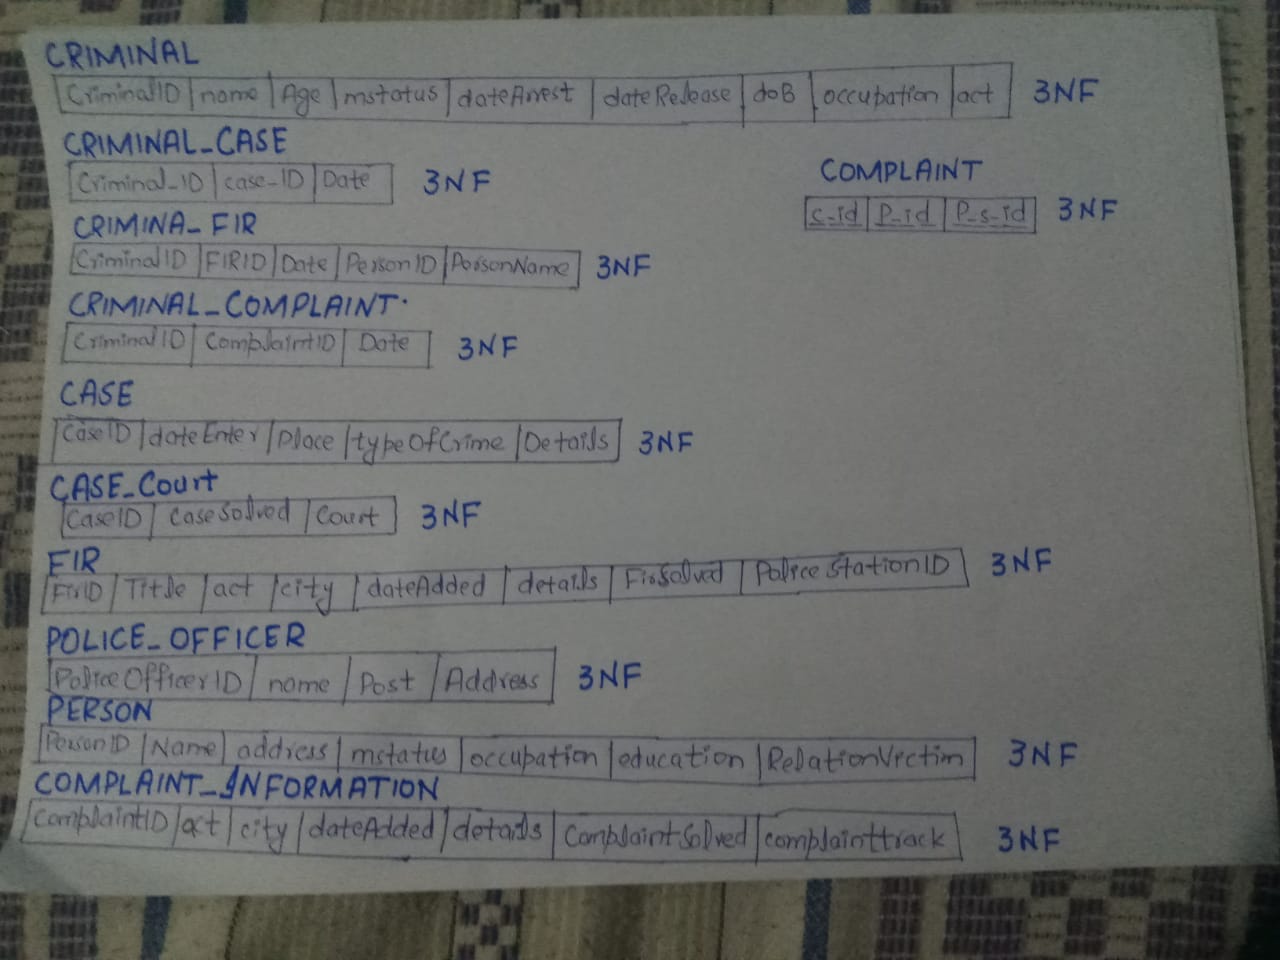 CRIMINAL
CriminalID name Age mstatus dateArrest dateRelease doB occupation act 3NF
CRIMINAL_CASE
Criminal_ID case_ID Date 3NF
COMPLAINT
c_id P_id P_s_id 3NF
CRIMINA_FIR
CriminalID FIRID Date PersonID PersonName 3NF
CRIMINAL_COMPLAINT.
CriminalID ComplaintID Date 3NF
CASE
CaseID dateEnter Place typeOfCrime Details 3NF
CASE_Court
CaseID CaseSolved Court 3NF
FIR
FirID Title act city dateAdded details FirSolved PoliceStationID 3NF
POLICE_OFFICER
PoliceOfficerID name Post Address 3NF
PERSON
PersonID Name address mstatus occupation education RelationVictim 3NF
COMPLAINT_INFORMATION
ComplaintID act city dateAdded details ComplaintSolved complainttrack 3NF